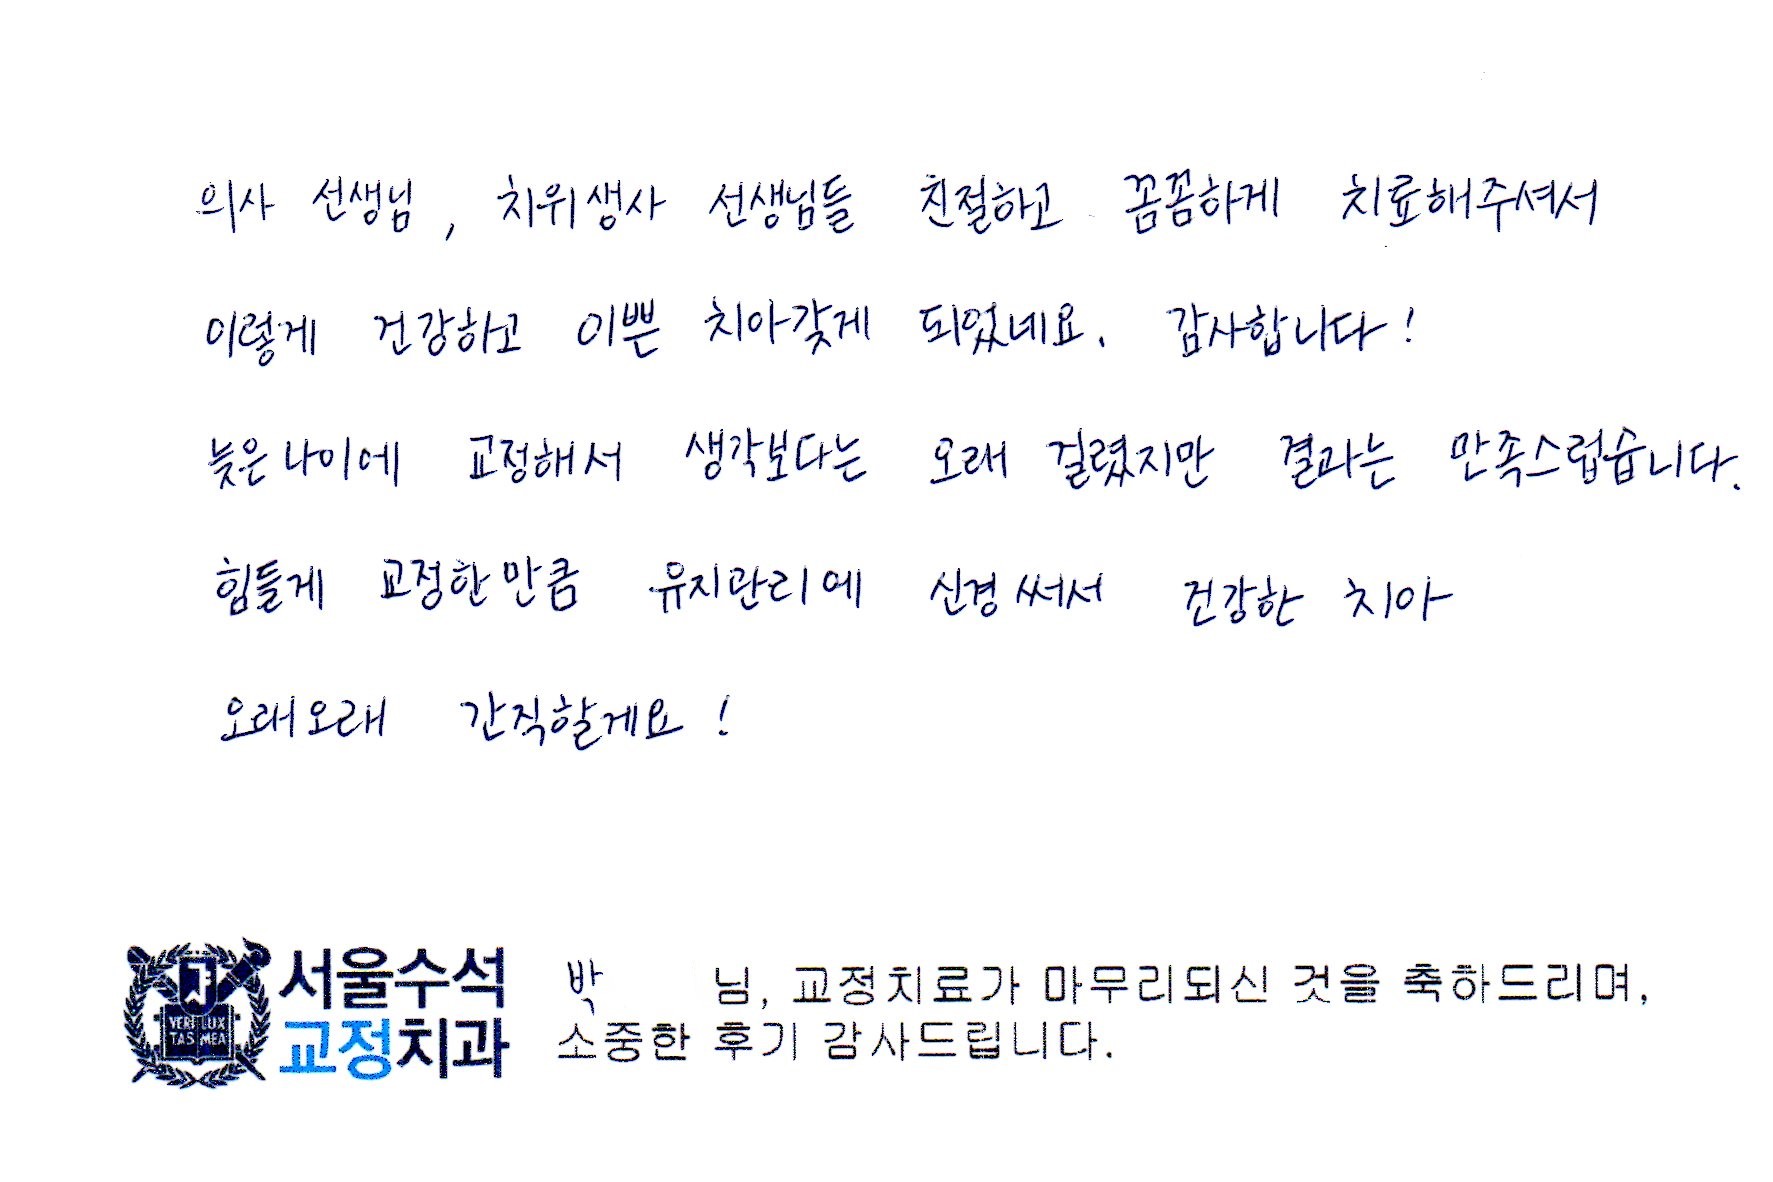 의사 선생님, 치위생사 선생님들 친절하고 꼼꼼하게 치료해주셔서
이렇게 건강하고 이쁜 치아갖게 되었네요. 감사합니다!
늦은나이에 교정해서 생각보다는 오래 걸렸지만 결과는 만족스럽습니다.
힘들게 교정한만큼 유지관리에 신경써서 건강한 치아
오래오래 간직할게요!
VERI LUX
TAS MEA
서울수석
교정치과
박 님, 교정치료가 마무리되신 것을 축하드리며,
소중한 후기 감사드립니다.